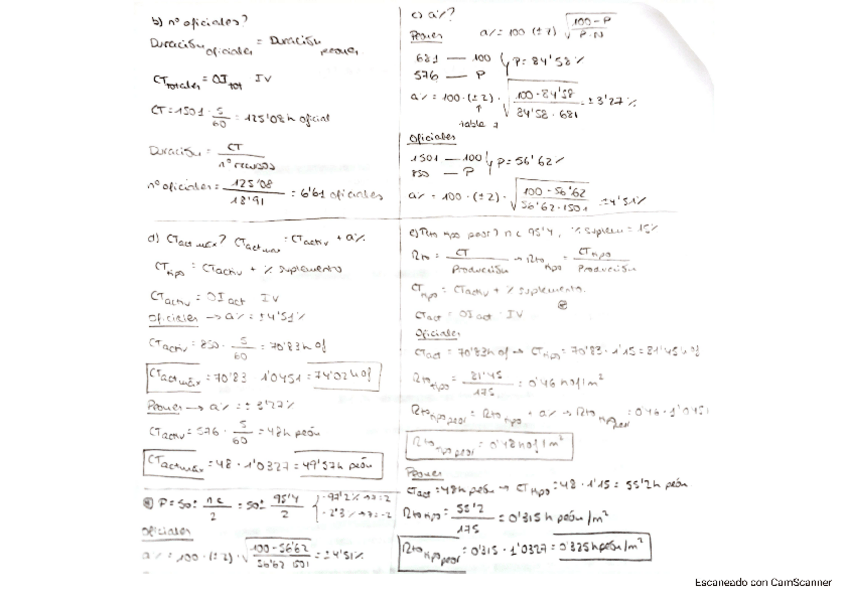 b) nº oficiales?
Duración oficiales = Duración peones
CT totales = OI tot · IV
CT = 1501 · 5/60 = 125'08 h oficial
Duración = CT / nº recursos
nº oficiales = 125'08 / 18'91 = 6'61 oficiales
c) a%?
Peones
a% = 100 (± z) √(100 - P / P·N)
681 — 100
576 — P
P = 84'58%
a% = 100 · (± 2) · √(100 - 84'58 / 84'58 · 681) = ± 3'27%
tabla
Oficiales
1501 — 100
850 — P
P = 56'62%
a% = 100 · (± 2) · √(100 - 56'62 / 56'62 · 1501) = ± 4'51%
d) CT act max? CT act max = CT activ + a%
CT tipo = CT activ + % suplemento
CT activ = OI act · IV
Oficiales → a% = ± 4'51%
CT activ = 850 · 5/60 = 70'83 h of
CT act max = 70'83 · 1'0451 = 74'02 h of
Peones → a% = ± 3'27%
CT activ = 576 · 5/60 = 48 h peón
CT act max = 48 · 1'0327 = 49'57 h peón
P = 50 ± nc/2 = 50 ± 95'4/2
97'7% → z = 2
2'3% → z = -2
Oficiales
a% = 100 · (± 2) · √(100 - 56'62 / 56'62 · 1501) = ± 4'51%
e) Rto tipo peor? nc 95'4, % suplem = 15%
Rto = CT / Producción → Rto tipo = CT tipo / Producción
CT tipo = CT activ + % suplemento.
CT act = OI act · IV
Oficiales
CT act = 70'83 h of → CT tipo = 70'83 · 1'15 = 81'45 h of
Rto tipo = 81'45 / 175 = 0'46 h of/m²
Rto tipo peor = Rto tipo + a% → Rto tipo peor = 0'46 · 1'0451
Rto tipo peor = 0'48 h of/m²
Peones
CT act = 48 h peón → CT tipo = 48 · 1'15 = 55'2 h peón
Rto tipo = 55'2 / 175 = 0'315 h peón/m²
Rto tipo peor = 0'315 · 1'0327 = 0'325 h peón/m²
Escaneado con CamScanner